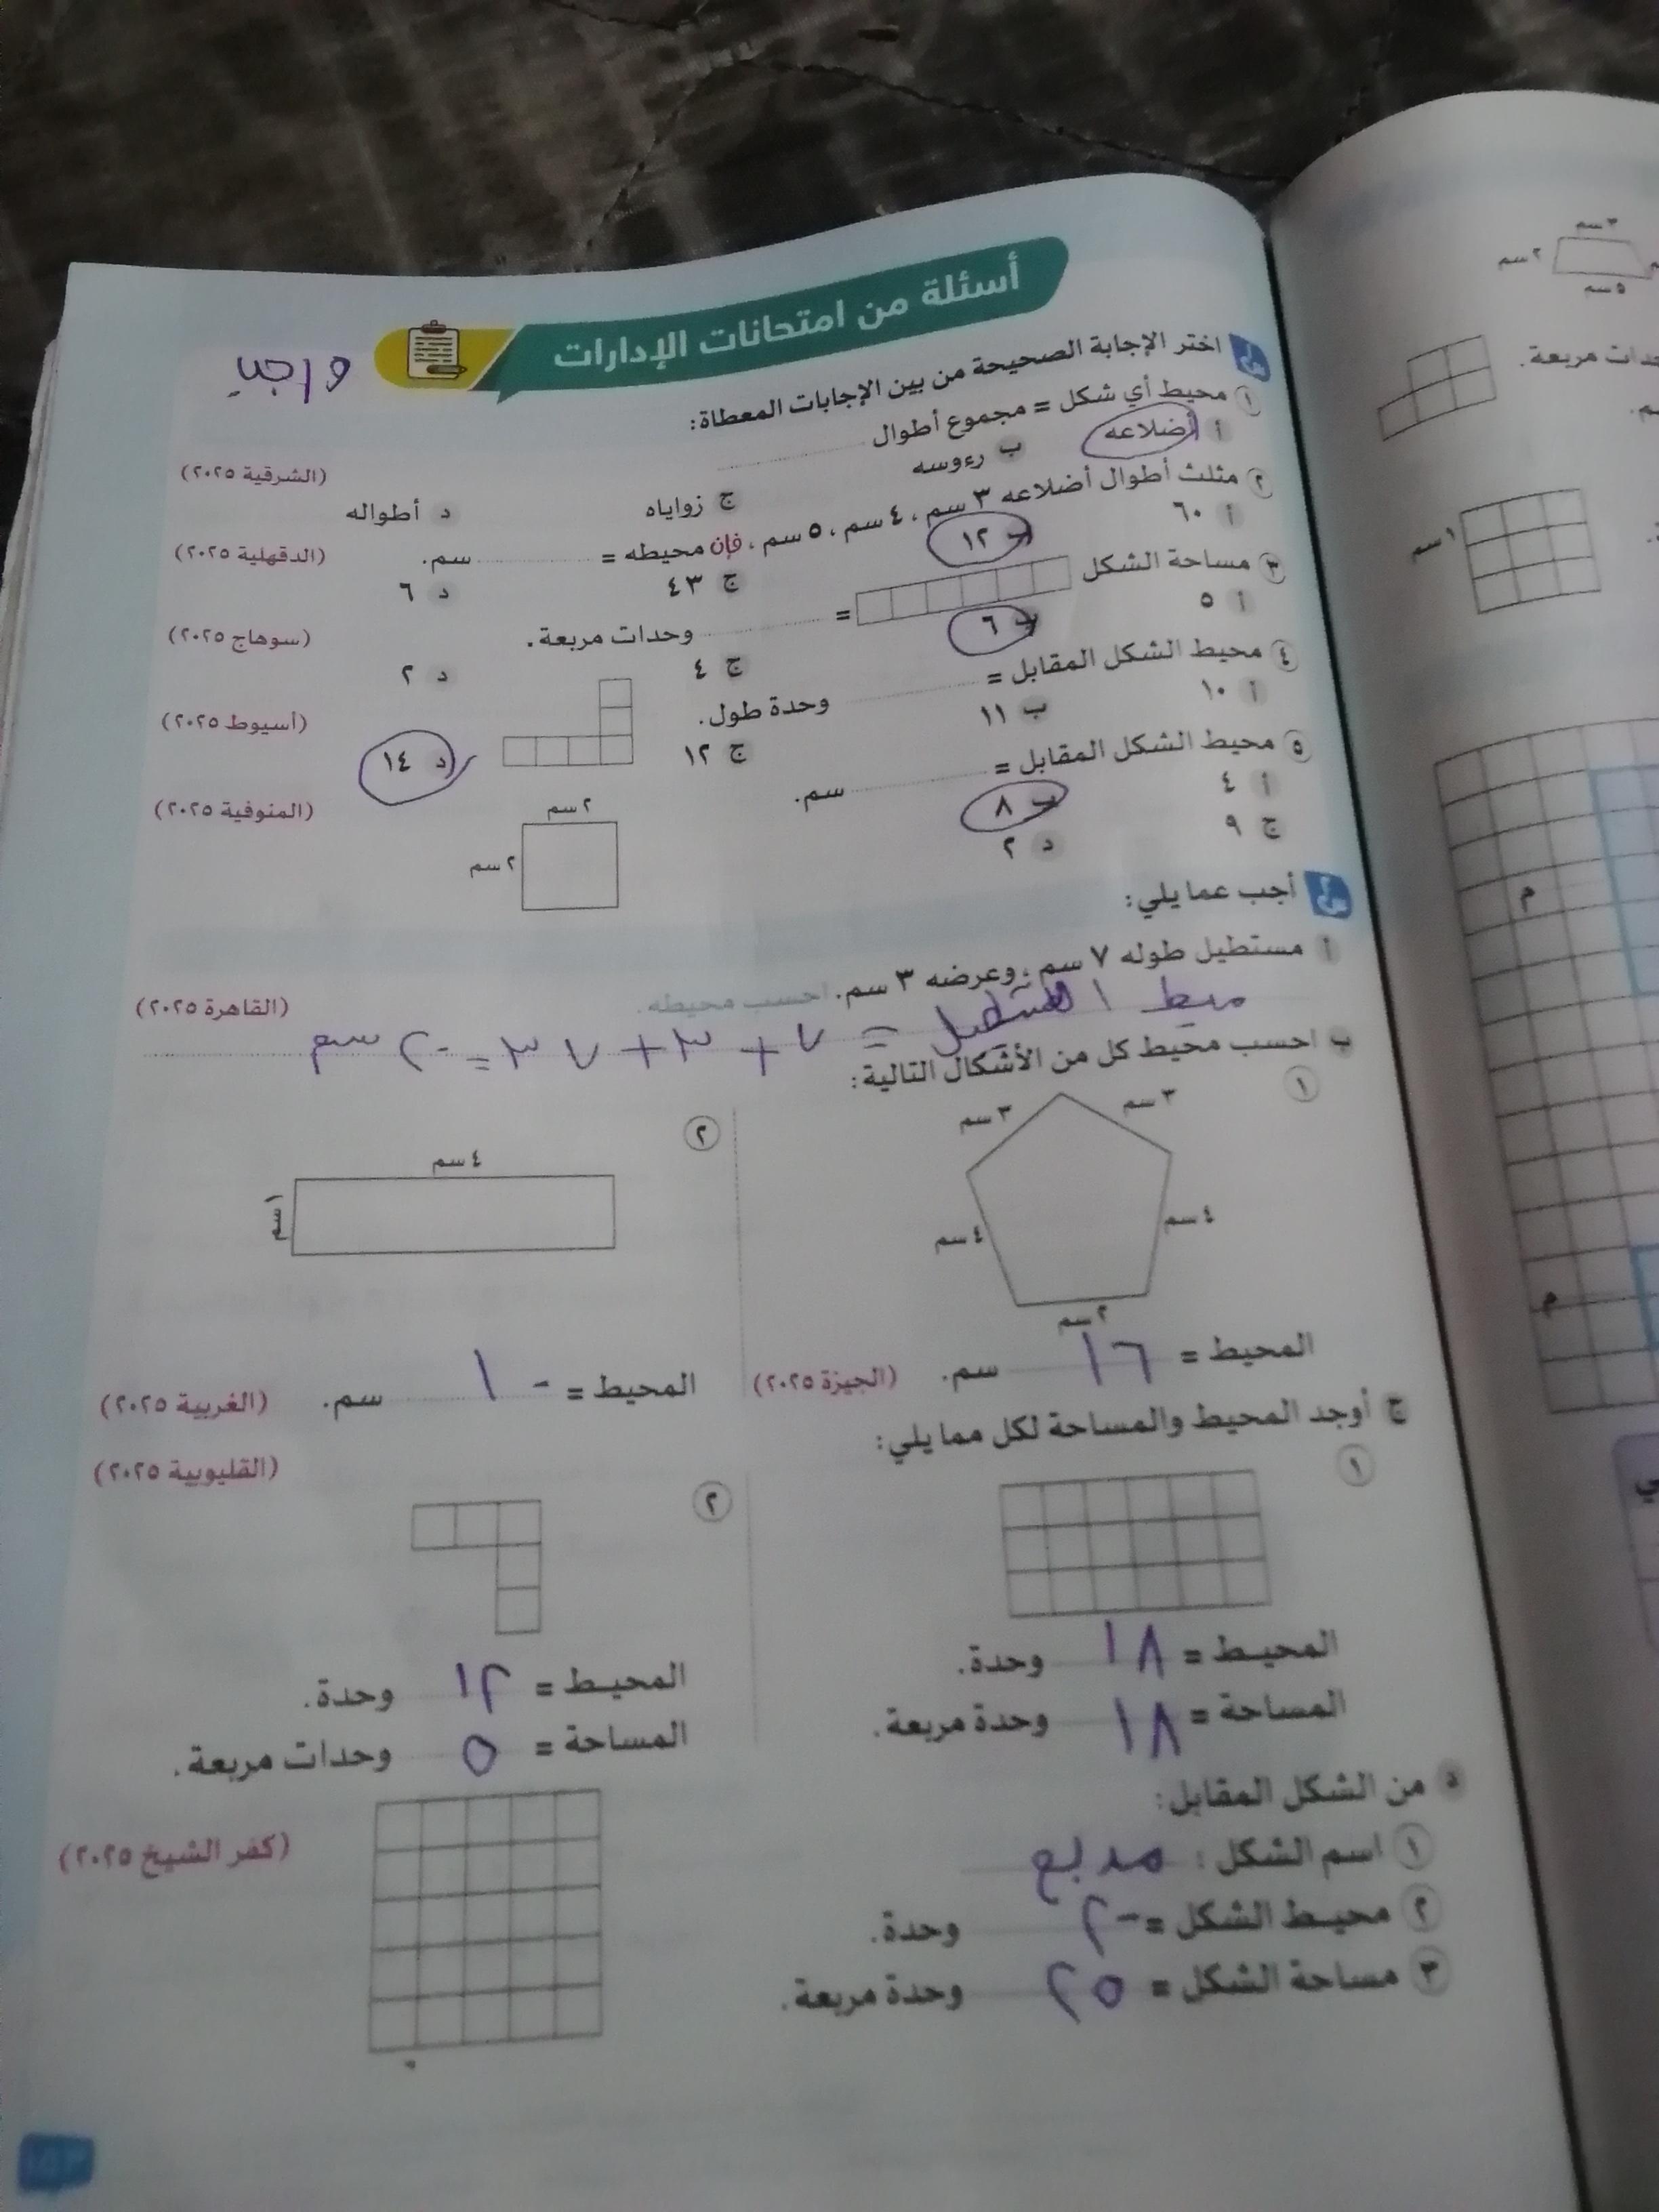 أسئلة من امتحانات الإدارات
واجب
اختر الإجابة الصحيحة من بين الإجابات المعطاة:
١ محيط أي شكل = مجموع أطوال (الشرقية ٢٠٢٥)
أ أضلاعه ب رءوسه ج زواياه د أطواله
٢ مثلث أطوال أضلاعه ٣ سم، ٤ سم، ٥ سم، فإن محيطه = سم. (الدقهلية ٢٠٢٥)
أ ٦٠ ب ١٢ ج ٤٣ د ٦
٣ مساحة الشكل = وحدات مربعة. (سوهاج ٢٠٢٥)
أ ٥ ب ٦ ج ٤ د ٢
٤ محيط الشكل المقابل = وحدة طول. (أسيوط ٢٠٢٥)
أ ١٠ ب ١١ ج ١٢ د ١٤
٥ محيط الشكل المقابل = سم. (المنوفية ٢٠٢٥)
أ ٤ ب ٨
ج ٩ د ٢
٢ سم
٢ سم
أجب عما يلي:
أ مستطيل طوله ٧ سم، وعرضه ٣ سم. احسب محيطه. (القاهرة ٢٠٢٥)
محيط المستطيل = ٧ + ٣ + ٧ ٣ = ٢٠ سم
ب احسب محيط كل من الأشكال التالية:
١
٣ سم
٣ سم
٤ سم
٤ سم
٢ سم
المحيط = ١٦ سم. (الجيزة ٢٠٢٥)
٢
٤ سم
١ سم
المحيط = ١٠ سم. (الغربية ٢٠٢٥)
ج أوجد المحيط والمساحة لكل مما يلي: (القليوبية ٢٠٢٥)
١
المحيط = ١٨ وحدة.
المساحة = ١٨ وحدة مربعة.
٢
المحيط = ١٢ وحدة.
المساحة = ٥ وحدات مربعة.
د من الشكل المقابل: (كفر الشيخ ٢٠٢٥)
١ اسم الشكل: مربع
٢ محيط الشكل = ٢٠ وحدة.
٣ مساحة الشكل = ٢٥ وحدة مربعة.
١٥٣
٣ سم
٢ سم
٥ سم
دات مربعة.
١ سم
م
م